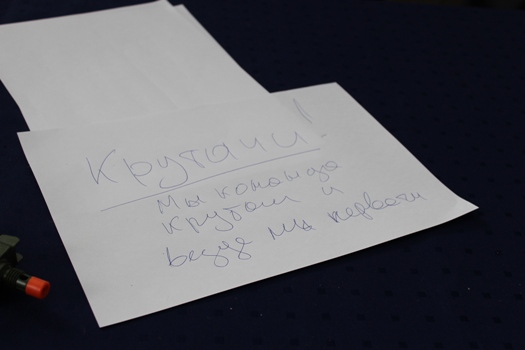 Крутачи!
Мы команда
крутачи и
везде мы первачи